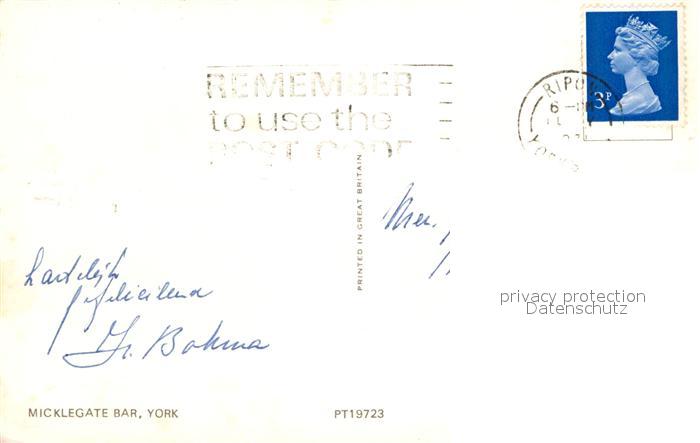 REMEMBER
to use the
POST CODE
RIPON
6-PM
YORKS
3P
PRINTED IN GREAT BRITAIN
Mr.
hartelijk
gefeliciteerd
Bokma
privacy protection
Datenschutz
MICKLEGATE BAR, YORK
PT19723